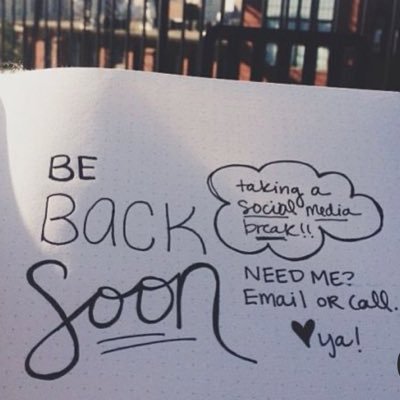 BE
BACK
Soon
taking a
social media
break!!
NEED ME?
Email or call.
♥ ya!